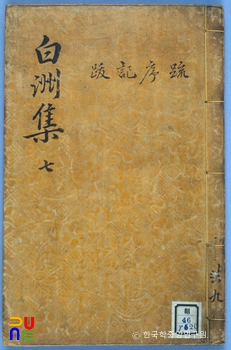 白洲集
七
疏序記跋
共九
朝
46
ⓒ한국학중앙연구원